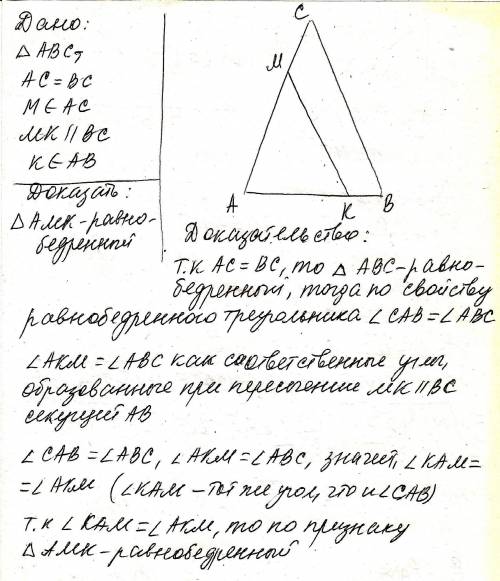 Дано:
△ABC,
AC = BC
M ∈ AC
MK || BC
K ∈ AB
Доказать:
△AMK - равно-
бедренный
C
M
A
K
B
Доказательство:
Т.к AC = BC, то △ABC - равно-
бедренный, тогда по свойству
равнобедренного треугольника ∠CAB = ∠ABC
∠AKM = ∠ABC как соответственные углы,
образованные при пересечении MK || BC
секущий AB
∠CAB = ∠ABC, ∠AKM = ∠ABC, значит, ∠KAM =
= ∠AKM (∠KAM - тот же угол, что и ∠CAB)
Т.к ∠KAM = ∠AKM, то по признаку
△AMK - равнобедренный